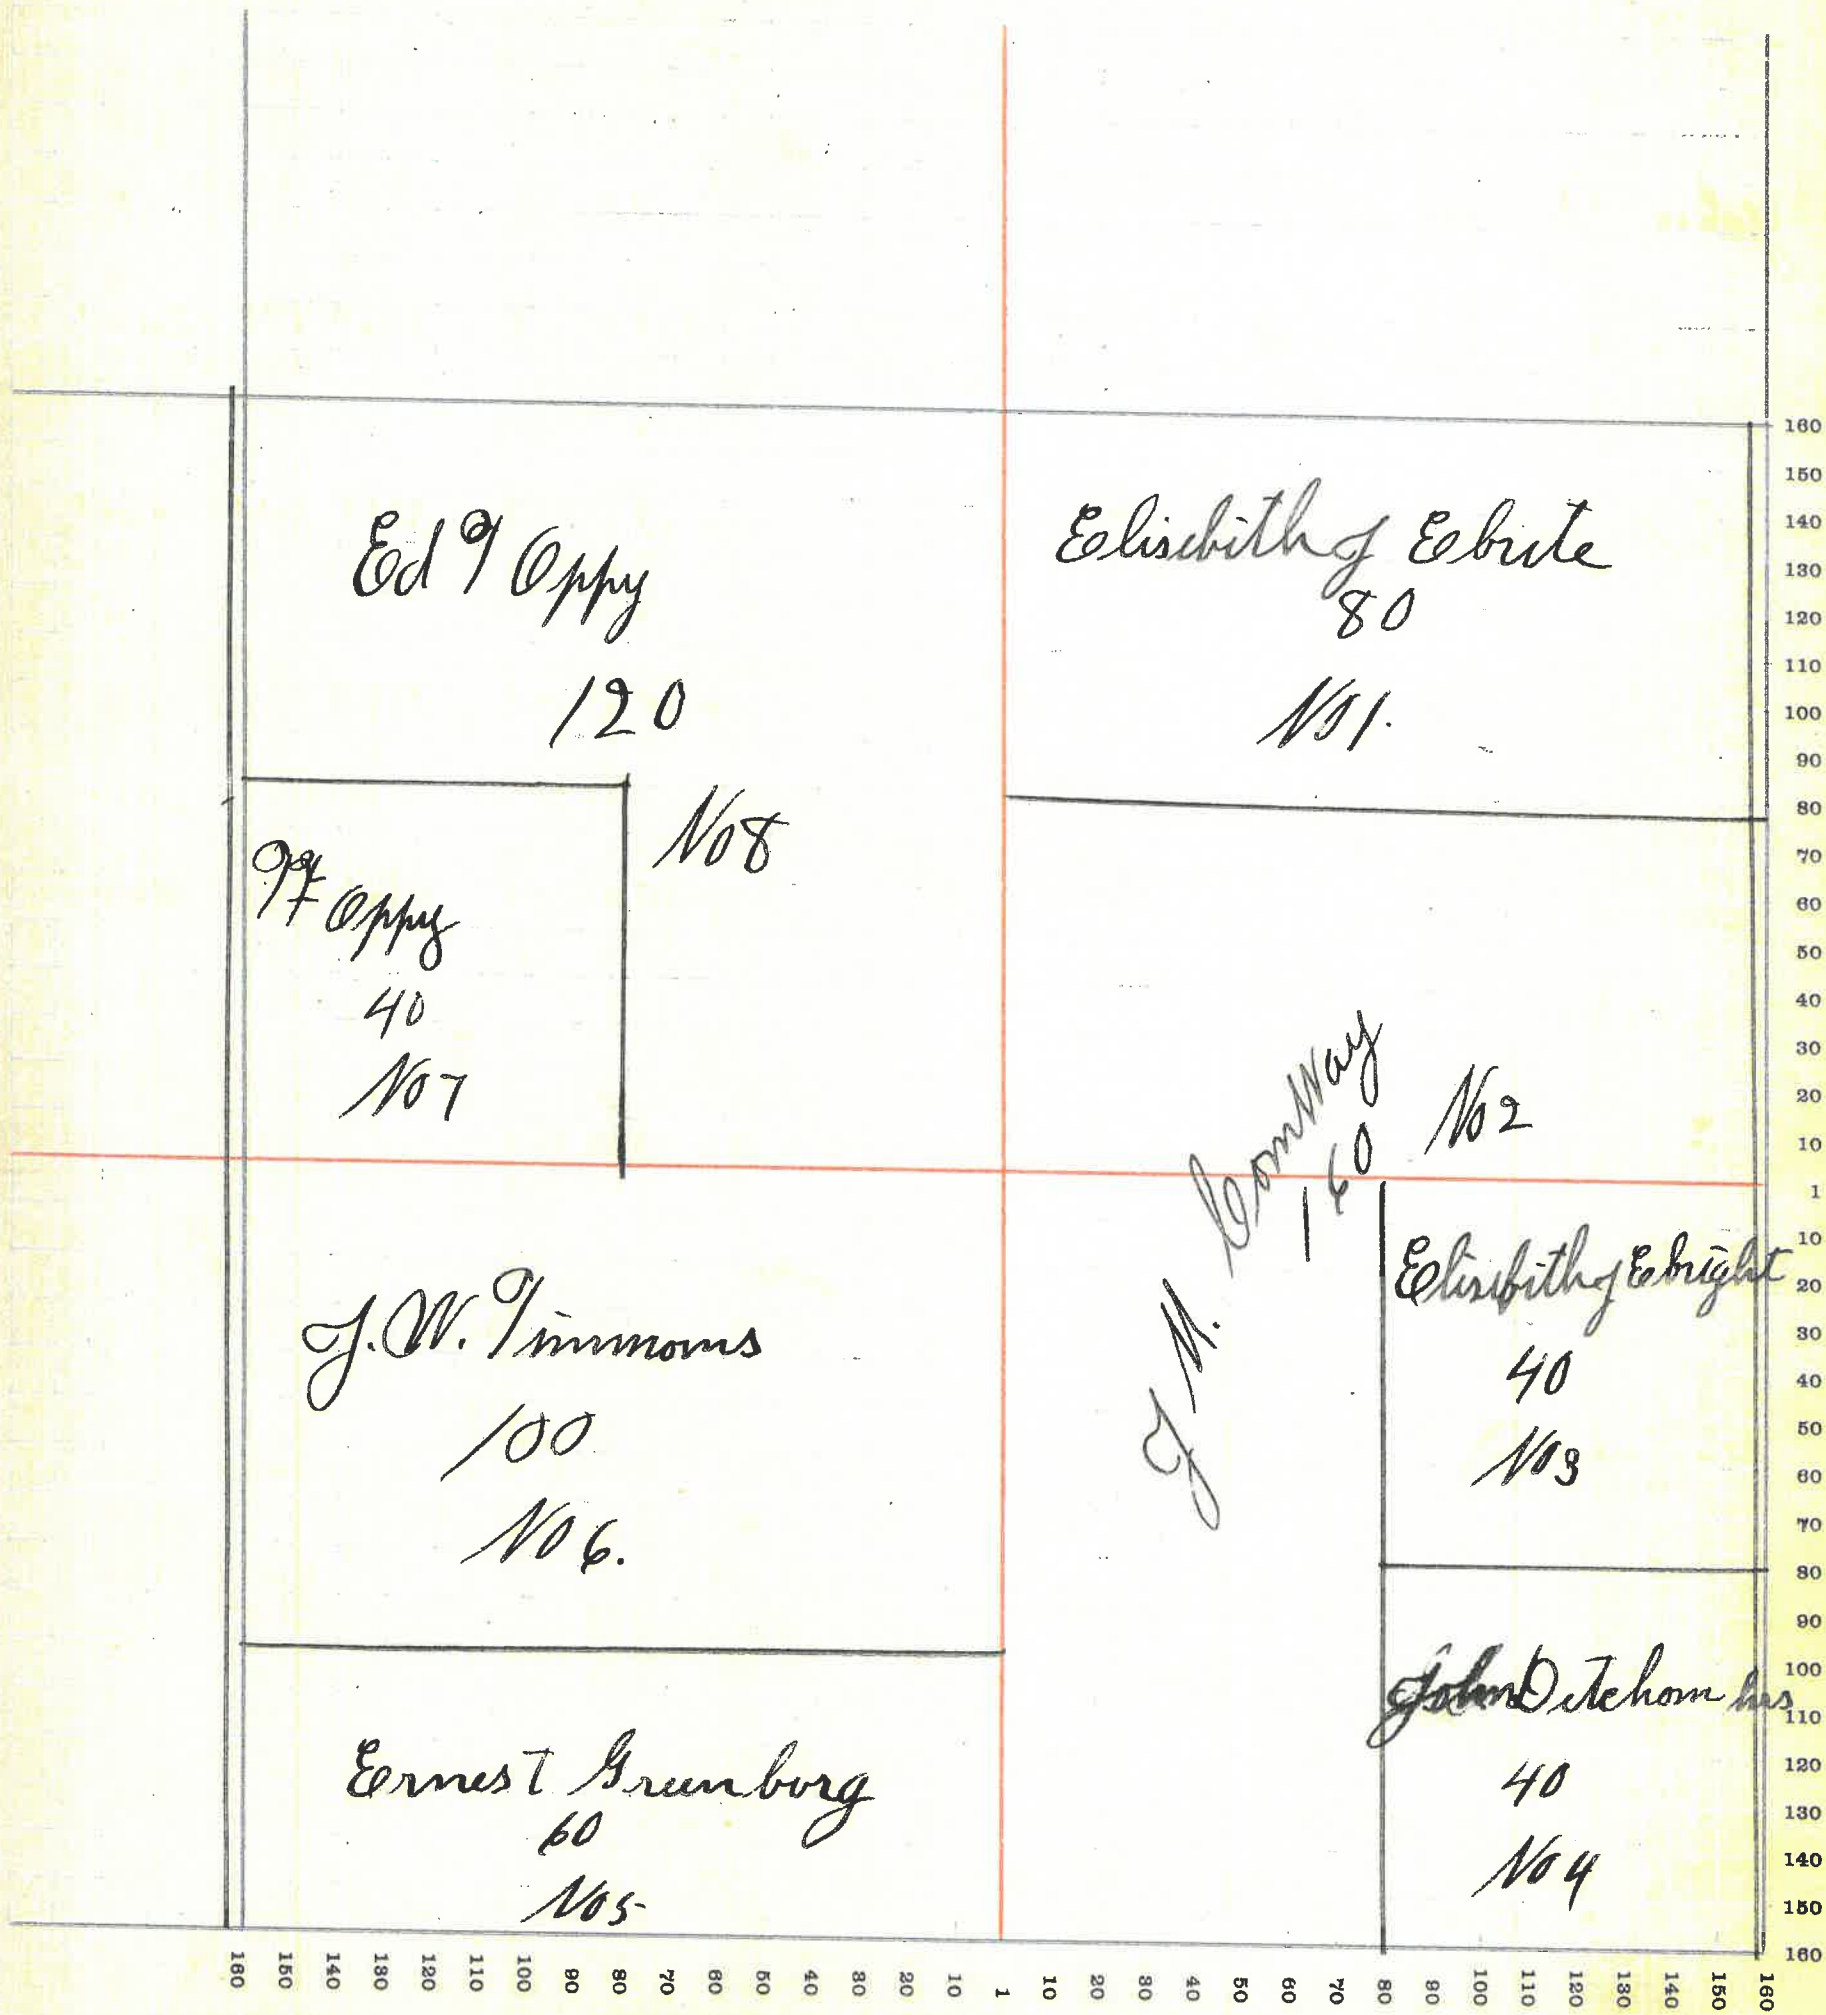 Ed T Oppy
120
No 8
Elisebith J Ebrite
80
No 1.
Oppy
40
No 7
J M. ConWay
160
No 2
Elisebith J Ebright
40
No 3
J. W. Timmons
100
No 6.
John Ditchom hrs
40
No 4
Ernest Grunborg
60
No 5
160
150
140
130
120
110
100
90
80
70
60
50
40
30
20
10
1
10
20
30
40
50
60
70
80
90
100
110
120
130
140
150
160
160 150 140 130 120 110 100 90 80 70 60 50 40 30 20 10 1 10 20 30 40 50 60 70 80 90 100 110 120 130 140 150 160